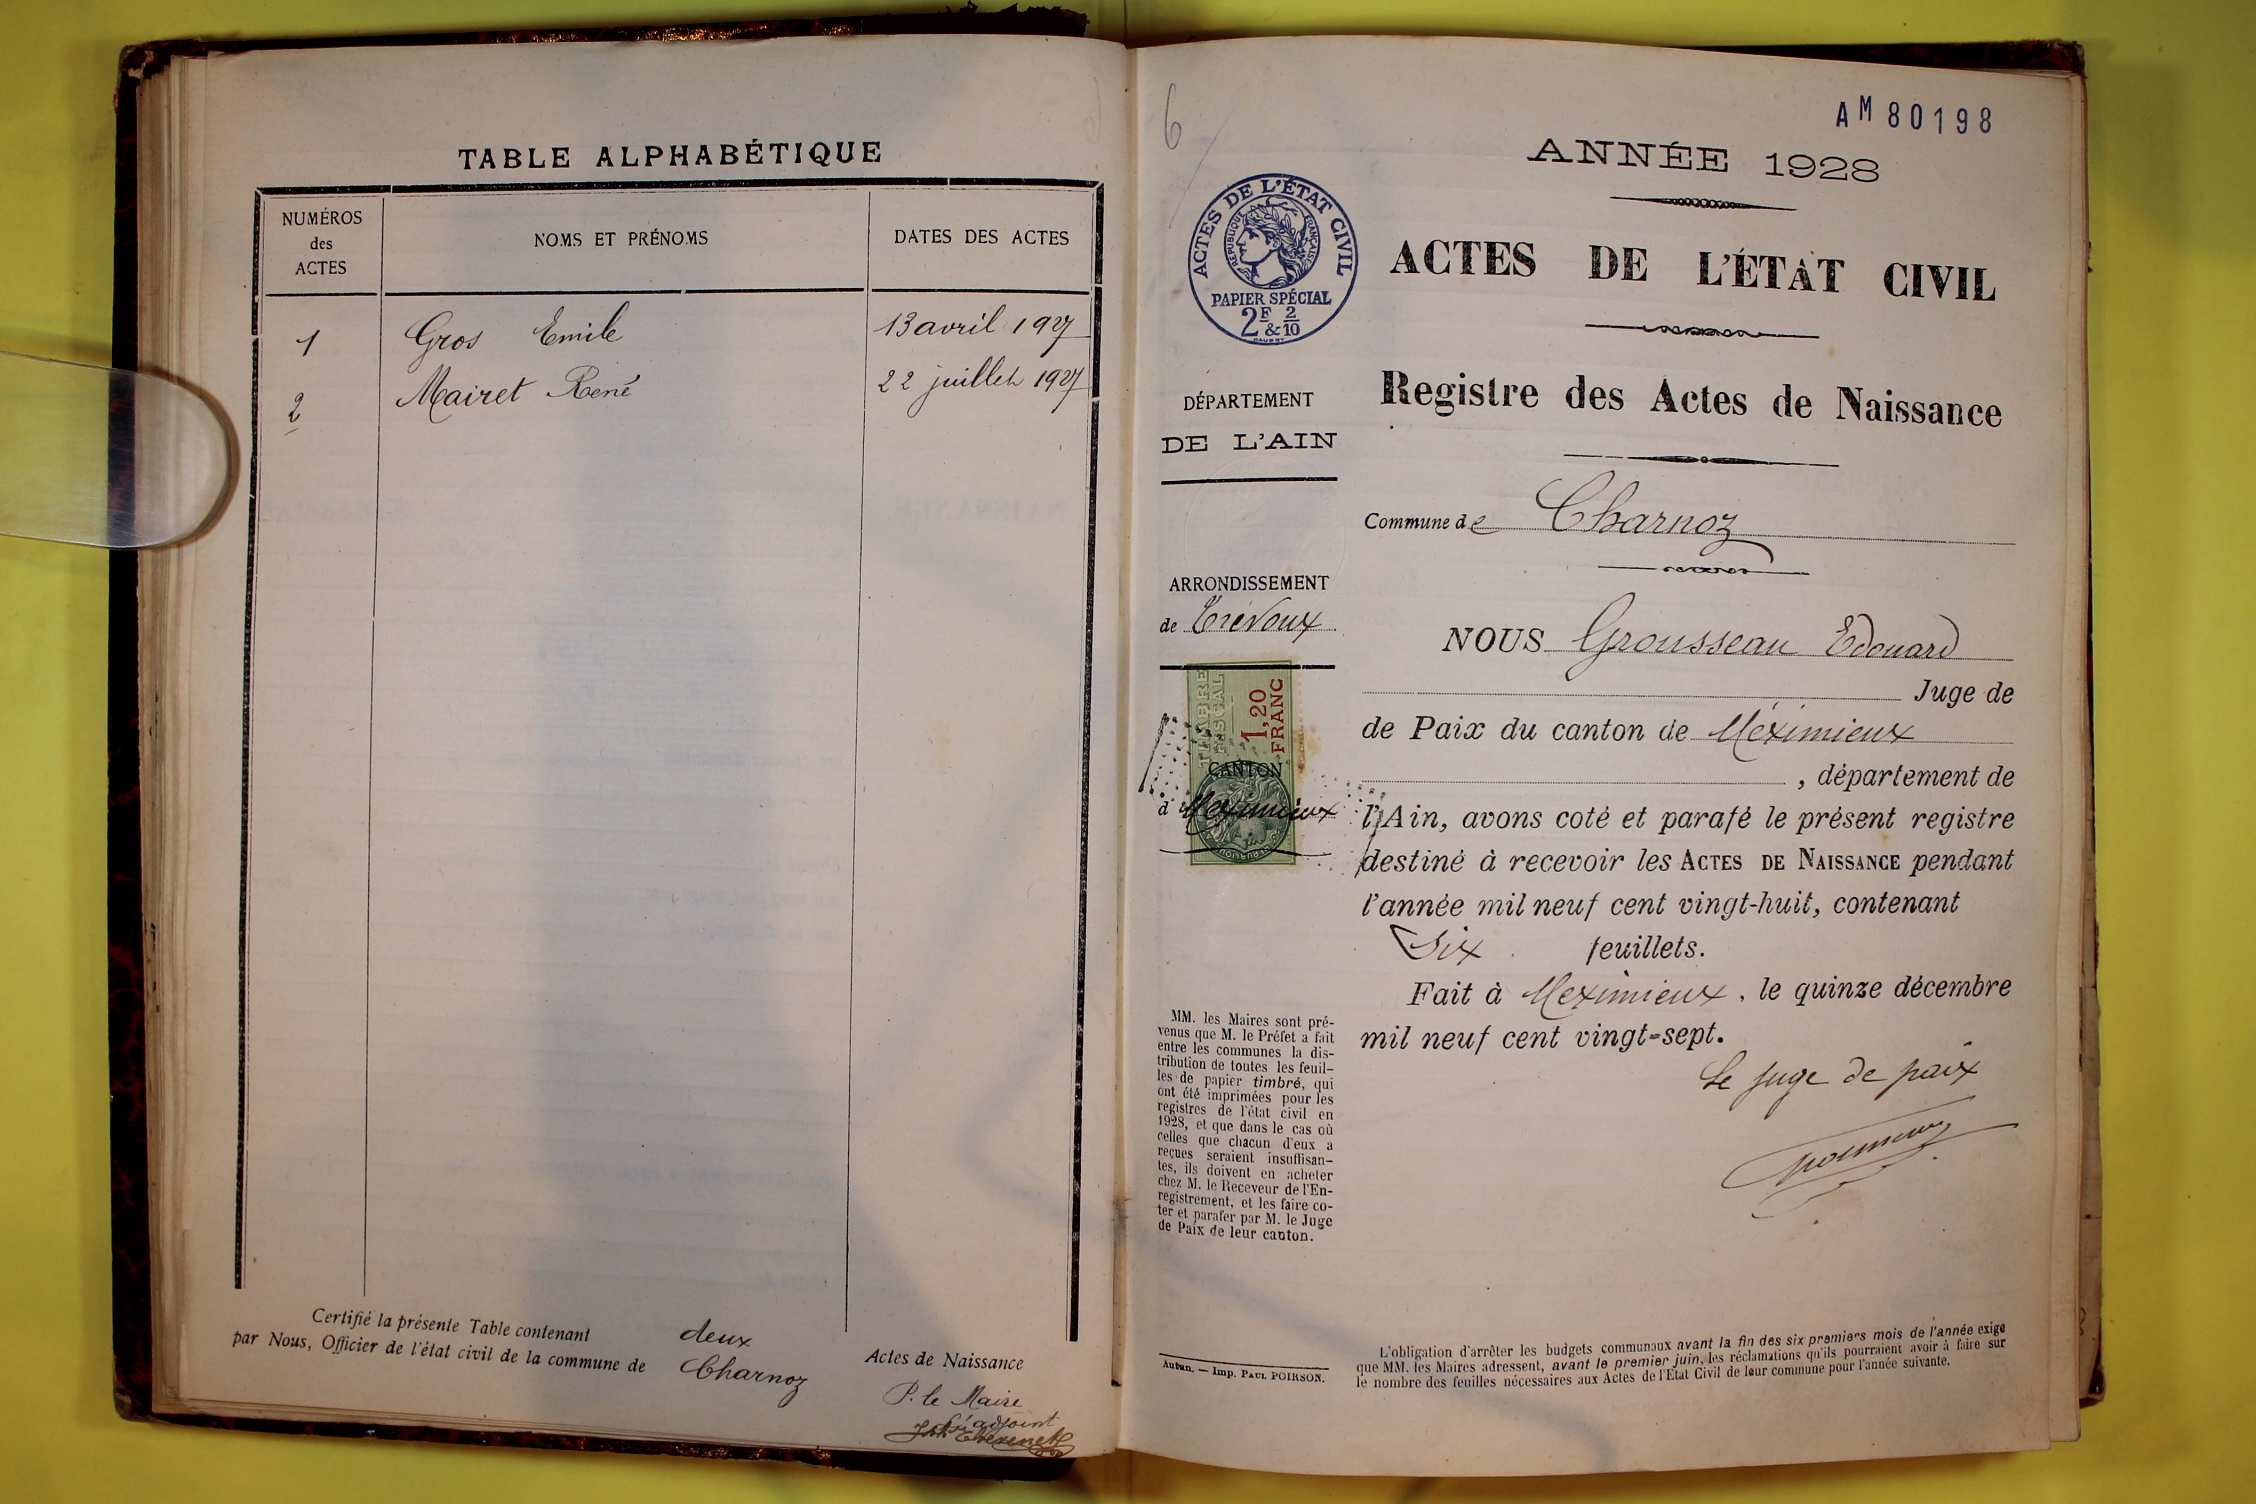 TABLE ALPHABÉTIQUE
NUMÉROS
des
ACTES
NOMS ET PRÉNOMS
DATES DES ACTES
1 Gros Emile 13 avril 1927
2 Mairet René 22 juillet 1927
Certifié la présente Table contenant deux Actes de Naissance
par Nous, Officier de l'état civil de la commune de Charnoz
P. le Maire
l'adjoint
6
AM80198
ANNÉE 1928
ACTES DE L'ÉTAT CIVIL
RÉPUBLIQUE FRANÇAISE
PAPIER SPÉCIAL
2F & 2/10
ACTES DE L'ÉTAT CIVIL
Registre des Actes de Naissance
DÉPARTEMENT
DE L'AIN
Commune de Charnoz
ARRONDISSEMENT
de Trévoux
TIMBRE
FISCAL
1,20
FRANC
CANTON
d Meximieux
NOUS Grousseau Edouard
Juge de
de Paix du canton de Méximieux
, département de
l'Ain, avons coté et parafé le présent registre
destiné à recevoir les ACTES DE NAISSANCE pendant
l'année mil neuf cent vingt-huit, contenant
Six feuillets.
Fait à Meximieux, le quinze décembre
mil neuf cent vingt-sept.
Le juge de paix
MM. les Maires sont pré-
venus que M. le Préfet a fait
entre les communes la dis-
tribution de toutes les feuil-
les de papier timbré, qui
ont été imprimées pour les
registres de l'état civil en
1928, et que dans le cas où
celles que chacun d'eux a
reçues seraient insuffisan-
tes, ils doivent en acheter
chez M. le Receveur de l'En-
registrement, et les faire co-
ter et parafer par M. le Juge
de Paix de leur canton.
Autun. — Imp. PAUL POIRSON.
L'obligation d'arrêter les budgets communaux avant la fin des six premiers mois de l'année exige
que MM. les Maires adressent, avant le premier juin, les réclamations qu'ils pourraient avoir à faire sur
le nombre des feuilles nécessaires aux Actes de l'Etat Civil de leur commune pour l'année suivante.